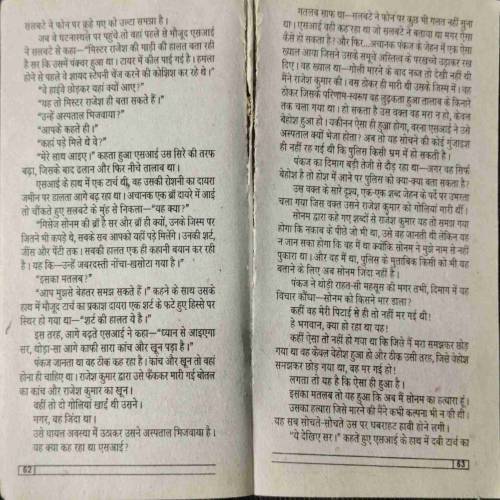 सलवटे ने फोन पर कुछ गए को उल्टा समझा है।
जब वे घटनास्थल पर पहुंचे तो वहां पहले से मौजूद एसआई
ने सलवटे से कहा—"मिस्टर राजेश की गाड़ी की हालत बता रही
है सर कि उसमें पंक्चर हुआ था। टायर में कील पाई गई है। हमला
होने से पहले वे शायद स्टेपनी चेंज करने की कोशिश कर रहे थे।"
"वे हाईवे छोड़कर यहां क्यों आए?"
"यह तो मिस्टर राजेश ही बता सकते हैं।"
"उन्हें अस्पताल भिजवाया?"
"आपके कहते ही।"
"कहां पड़े मिले थे वे?"
"मेरे साथ आइए।" कहता हुआ एसआई उस सिरे की तरफ
बढ़ा, जिसके बाद ढलान और फिर नीचे तालाब था।
एसआई के हाथ में एक टार्च थी, वह उसकी रोशनी का दायरा
जमीन पर डालता आगे बढ़ रहा था। अचानक एक ब्रॉ दायरे में आई
तो चौंकते हुए सलबटे के मुंह से निकला—"यह क्या?"
"मिसेज सोनम की ब्रॉ है सर और ब्रॉ ही क्यों, उनके जिस्म पर
जितने भी कपड़े थे, सबके सब आपको यहीं पड़े मिलेंगे। उनकी शर्ट,
जींस और पेंटी तक। सबकी हालत एक ही कहानी बयान कर रही
है। यह कि—उन्हें जबरदस्ती नोंचा-खसोटा गया है।"
"इसका मतलब?"
"आप मुझसे बेहतर समझ सकते हैं।" कहने के साथ उसके
हाथ में मौजूद टार्च का प्रकाश दायरा एक शर्ट के फटे हुए हिस्से पर
स्थिर हो गया था—"शर्ट की हालत ये है।"
इस तरह, आगे बढ़ते एसआई ने कहा—"ध्यान से आइएगा
सर, थोड़ा-सा आगे काफी सारा कांच और खून पड़ा है।"
पंकज जानता था वह ठीक कह रहा है। कांच और खून तो वहां
होना ही चाहिए था। राजेश कुमार द्वारा उसे फेंककर मारी गई बोतल
का कांच और राजेश कुमार का खून।
वहीं तो दो गोलियां खाई थी उसने।
मगर, वह जिंदा था।
उसे घायल अवस्था में उठाकर उसने अस्पताल भिजवाया है।
यह क्या कह रहा था एसआई?
62
मतलब साफ था—सलबटे ने फोन पर कुछ भी गलत नहीं सुना
था। एसआई वही कह रहा था जो सलबटे ने बताया था मगर ऐसा
कैसे हो सकता है? और फिर...अचानक पंकज के जेहन में एक ऐसा
ख्याल आया जिसने उसके समूचे अस्तित्व के परखच्चे उड़ाकर रख
दिए। वह ख्याल था—गोली मारने के बाद नब्ज तो देखी नहीं थी
मैंने राजेश कुमार की। बस ठोकर ही मारी थी उसके जिस्म में। वह
ठोकर जिसके परिणाम-स्वरूप वह लुढ़कता हुआ तालाब के किनारे
तक चला गया था। हो सकता है उस वक्त वह मरा न हो, केवल
बेहोश हुआ हो। यकीनन ऐसा ही हुआ होगा, वरना एसआई ने उसे
अस्पताल क्यों भेजा होता? अब तो यह सोचने की कोई गुंजाइश
ही नहीं रह गई थी कि पुलिस किसी भ्रम में हो सकती है।
पंकज का दिमाग बड़ी तेजी से दौड़ रहा था—अगर वह सिर्फ
बेहोश है तो होश में आने पर पुलिस को क्या-क्या बता सकता है?
उस वक्त के सारे दृश्य, एक-एक शब्द जेहन के पर्दे पर उभरता
चला गया जिस वक्त उसने राजेश कुमार को गोलियां मारी थीं।
सोनम द्वारा कहे गए शब्दों से राजेश कुमार यह तो समझ गया
होगा कि नकाब के पीछे जो भी था, उसे वह जानती थी लेकिन वह
न जान सका होगा कि वह मैं था क्योंकि सोनम ने मुझे नाम से नहीं
पुकारा था। और वह मैं था, पुलिस के मुताबिक किसी को भी यह
बताने के लिए अब सोनम जिंदा नहीं है।
पंकज ने थोड़ी राहत-सी महसूस की मगर तभी, दिमाग में यह
विचार कौंधा—सोनम को किसने मार डाला?
कहीं वह मेरी पिटाई से ही तो नहीं मर गई थी!
हे भगवान, क्या हो रहा था यह!
कहीं ऐसा तो नहीं हो गया था कि जिसे मैं मरा समझकर छोड़
गया था वह केवल बेहोश हुआ हो और ठीक उसी तरह, जिसे बेहोश
समझकर छोड़ गया था, वह मर गई हो!
लगता तो यह है कि ऐसा ही हुआ है।
इसका मतलब तो यह हुआ कि अब मैं सोनम का हत्यारा हूं।
उसका हत्यारा जिसे मारने की मैंने कभी कल्पना भी न की थी।
यह सब सोचते-सोचते उस पर घबराहट हावी होने लगी।
"ये देखिए सर।" कहते हुए एसआई के हाथ में दबी टार्च का
63